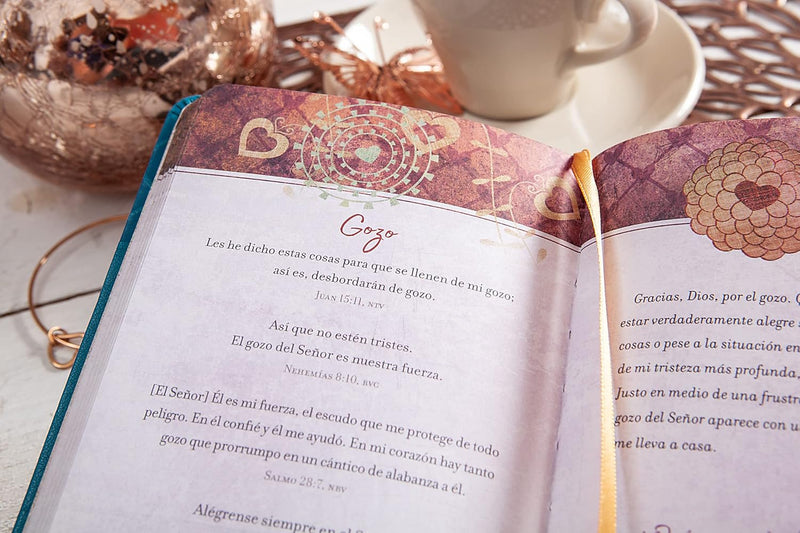 Gozo
Les he dicho estas cosas para que se llenen de mi gozo;
así es, desbordarán de gozo.
Juan 15:11, NTV
Así que no estén tristes.
El gozo del Señor es nuestra fuerza.
Nehemías 8:10, RVC
[El Señor] Él es mi fuerza, el escudo que me protege de todo
peligro. En él confié y él me ayudó. En mi corazón hay tanto
gozo que prorrumpo en un cántico de alabanza a él.
Salmo 28:7, NBV
Alégrense siempre en el
Gracias, Dios, por el gozo.
estar verdaderamente alegre
cosas o pese a la situación en
de mi tristeza más profunda,
Justo en medio de una
gozo del Señor aparece con
me lleva a casa.